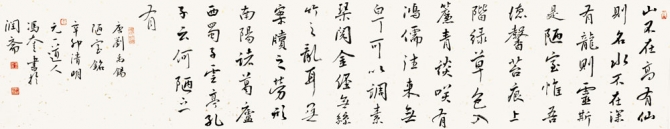 山不在高有仙
則名水不在深
有龍則靈斯
是陋室惟吾
德馨苔痕上
階緑草色入
簾青談咲有
鴻儒往來無
白丁可以調素
琴閱金經無絲
竹之亂耳無
案牘之勞形
南陽諸葛廬
西蜀子雲亭孔
子云何陋之
有
唐劉禹錫
陋室銘
辛卯清明
元一道人
馮書於
潤齋